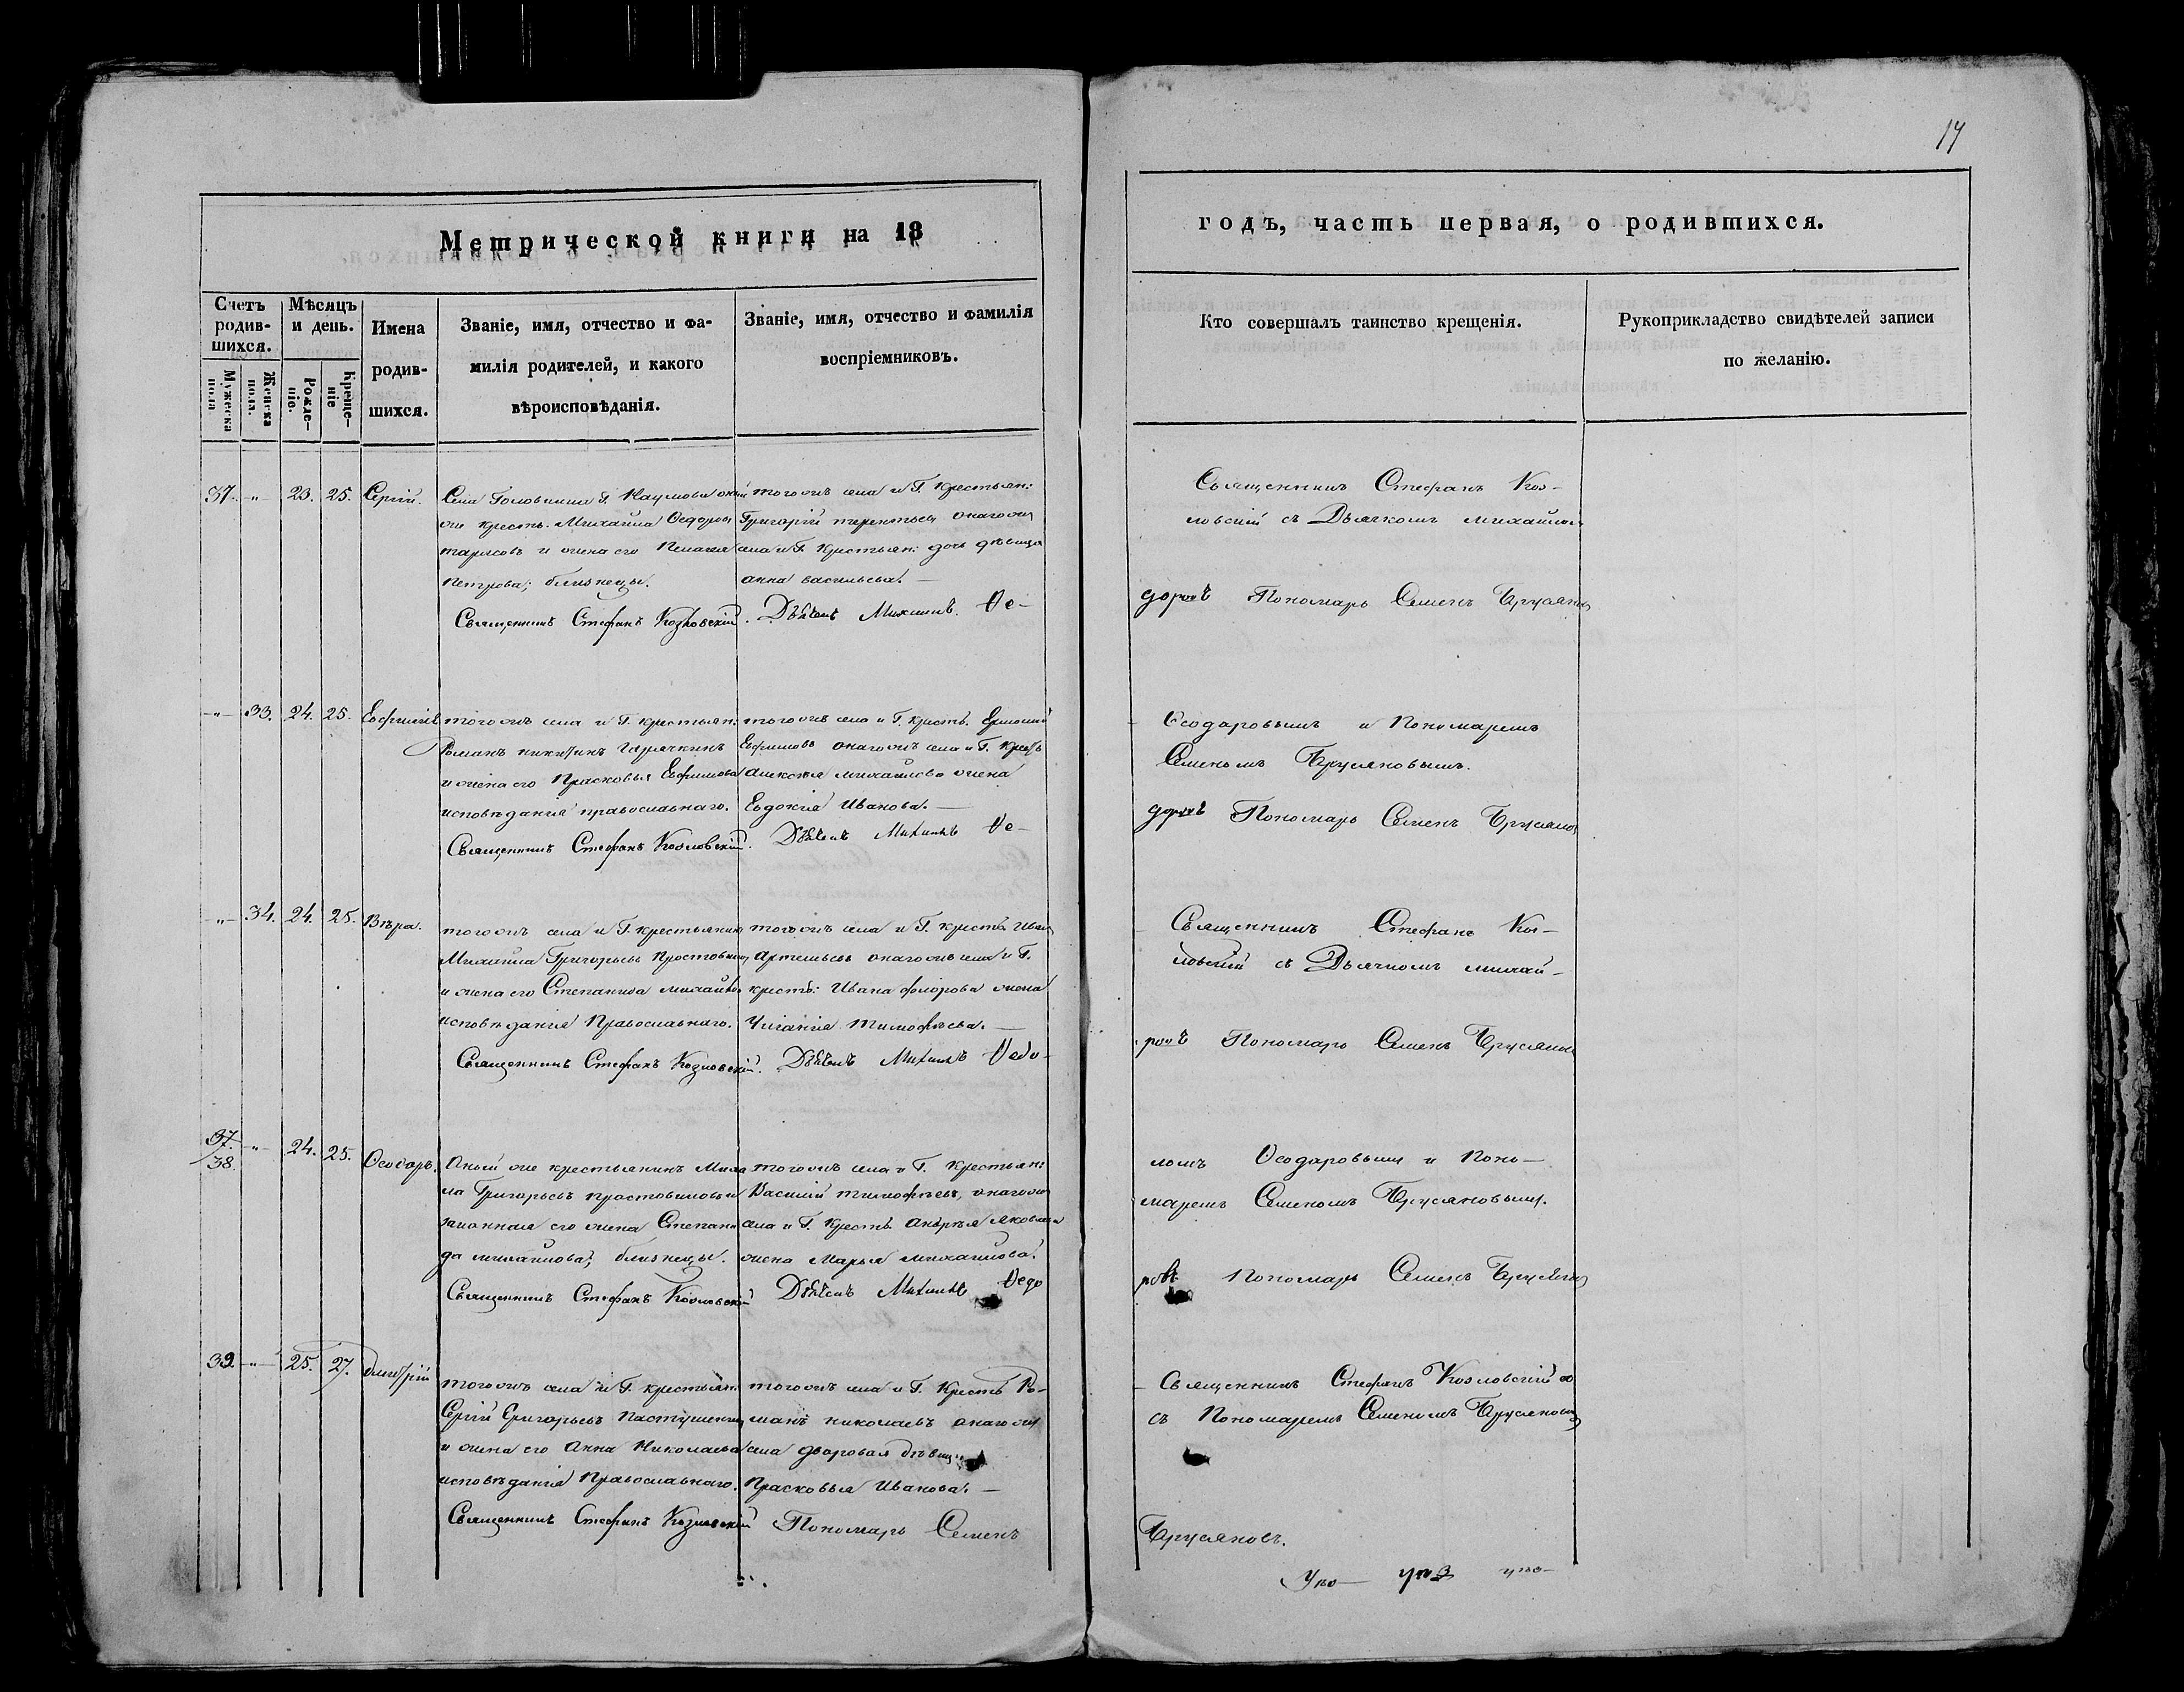 14
Метрической книги на 18
годъ, часть первая, о родившихся.
Счетъ родив-шихся.
Мужеска пола
Женска пола.
Мѣсяцъ и день.
Рожде-ніе.
Креще-ніе
Имена родив-шихся.
Званіе, имя, отчество и фа-
милія родителей, и какого
вѣроисповѣданія.
Званіе, имя, отчество и фамилія
воспріемниковъ.
Кто совершалъ таинство крещенія.
Рукоприкладство свидѣтелей записи
по желанію.
37. -"- 23. 25. Сергій.
Села Г. Наумова
же кресть. Михаила Ѳедоров
и жена его Пелагея
Петрова; близнецы.
Священникъ Стефанъ Козловскій.
тогожъ села и Г. Крестьян:
Григорій терентьев онагожъ
села и Г. Крестьян: дочь дѣвица
анна васильева. —
Дьячекъ Михаилъ Ѳе-
Священникъ Стефанъ Коз-
ловскій съ Дьячкомъ михаиломъ
доровъ Пономарь Семенъ Брусяновъ
-"- 33. 24. 25. Евфимія
тогожъ села и Г. крестьян:
Романъ никитинъ Гарячкинъ
и жена его Прасковья Евфимова
исповѣданія православнаго.
Священникъ Стефанъ Козловскій.
тогожъ села и Г. крестъ.
Евфимовъ онагожъ села и Г. крестъ
алексѣя михаилова жена
Евдокія Иванова. —
Дьячекъ Михаилъ Ѳе-
Ѳеодоровымъ и Пономаремъ
Семеномъ Брусяновымъ.
доровъ Пономарь Семенъ Брусяновъ
-"- 34. 24. 25. Вѣра.
тогожъ села и Г. крестьянинъ
Михаила Григорьевъ
и жена его Степанида михаилова
исповѣданія Православнаго.
Священникъ Стефанъ Козловскій.
тогожъ села и Г. крестъ Иванъ
Артемьевъ онагожъ села и Г.
крестъ: Ивана жена
тимофѣева. —
Дьячекъ Михаилъ Ѳедо-
Священникъ Стефанъ Коз-
ловскій съ Дьячкомъ михаи-
ровъ Пономарь Семенъ Брусяновъ
37. 38. -"- 24. 25. Ѳеодоръ.
Оный же крестьянинъ Миха
ла Григорьевъ и
законная его жена Степани
да михаилова; близнецы.
Священникъ Стефанъ Козловскій
тогожъ села и Г. Крестьян:
Василій тимофѣевъ, онагожъ
села и Г. крестъ. Андрѣя яковлева
жена Марья михаилова.
Дьячекъ Михаилъ Ѳедо
ломъ Ѳеодоровымъ и Поно-
маремъ Семеномъ Брусяновымъ.
ровъ Пономарь Семенъ Брусяновъ
39. -"- 25. 27. Димитрій
тогожъ села и Г. крестьян:
Сергій Григорьевъ
и жена его Анна Николаева
исповѣданія Православнаго.
Священникъ Стефанъ Козловскій
тогожъ села и Г. Крестъ Ро-
манъ николаевъ онагожъ
села дворовая дѣвица
Прасковья Иванова. —
Пономарь Семенъ
Священникъ Стефанъ Козловскій
съ Пономаремъ Семеномъ Брусяновымъ
Брусяновъ.